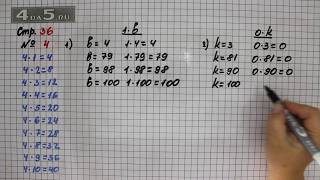 4 ДА 5.RU
Стр. 36
№ 4
1) 1·b
b = 4 1·4 = 4
b = 79 1·79 = 79
b = 98 1·98 = 98
b = 100 1·100 = 100
2) 0·k
k = 3 0·3 = 0
k = 81 0·81 = 0
k = 90 0·90 = 0
k = 100
4·1 = 4
4·2 = 8
4·3 = 12
4·4 = 16
4·5 = 20
4·6 = 24
4·7 = 28
4·8 = 32
4·9 = 36
4·10 = 40